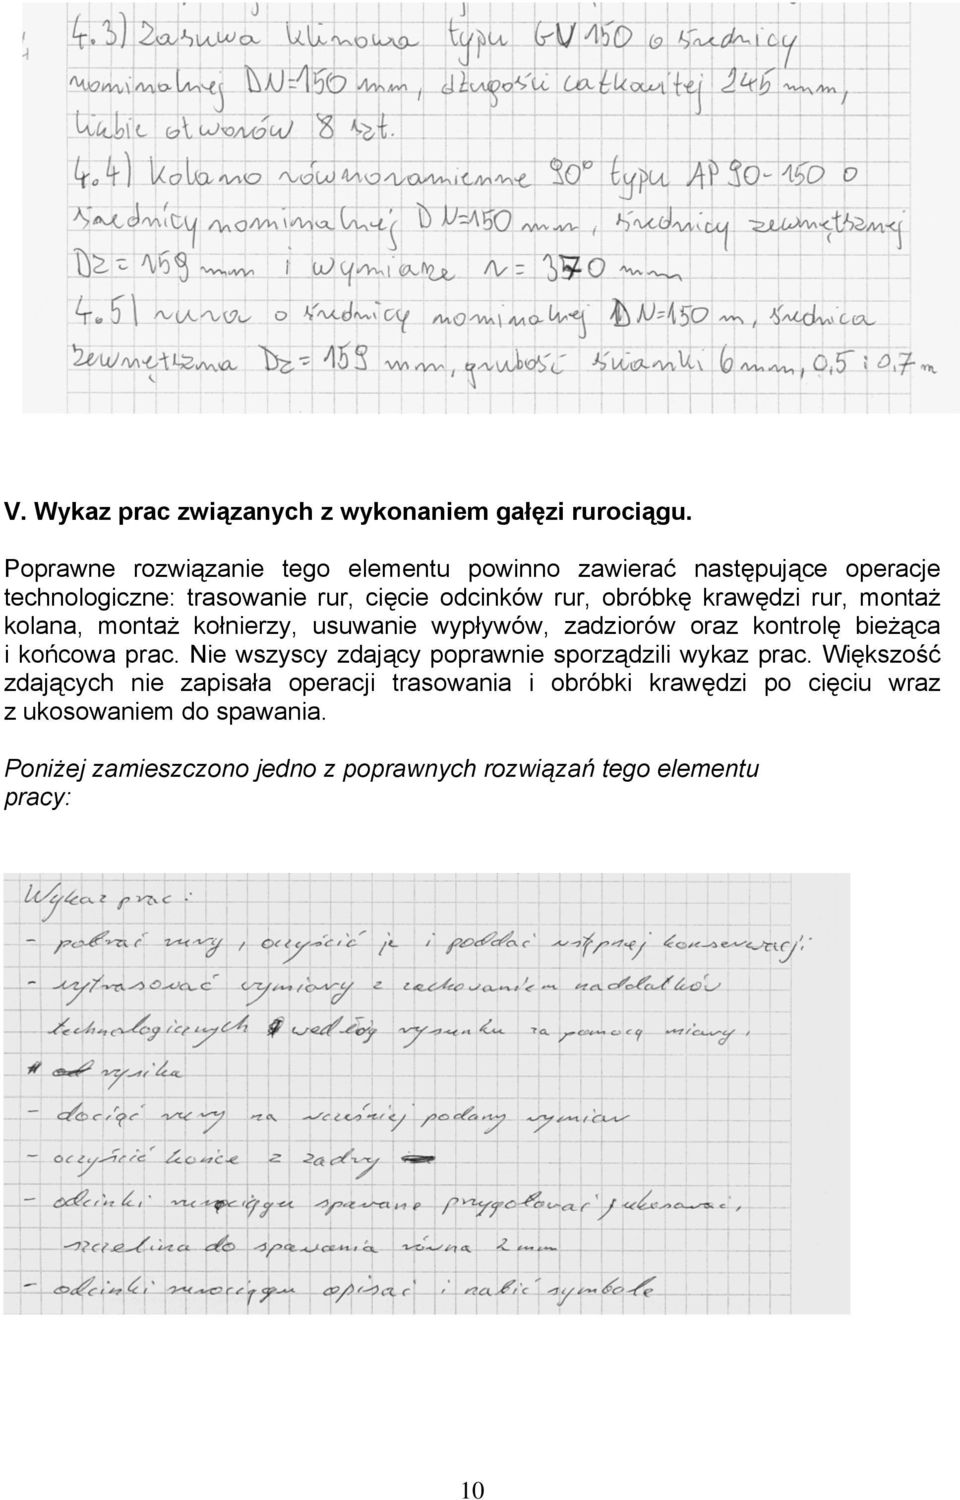 4.3) Zasuwa klinowa typu GV 150 o średnicy
nominalnej DN=150 mm, długości całkowitej 245 mm,
liczbie otworów 8 szt.
4.4) Kolano równoramienne 90° typu AP 90-150 o
średnicy nominalnej DN=150 mm, średnicy zewnętrznej
Dz = 159 mm i wymiarze r = 370 mm
4.5) rura o średnicy nominalnej DN=150 m, średnica
zewnętrzna Dz = 159 mm, grubość ścianki 6 mm, 0,5 i 0,7 m
V. Wykaz prac związanych z wykonaniem gałęzi rurociągu.
Poprawne rozwiązanie tego elementu powinno zawierać następujące operacje
technologiczne: trasowanie rur, cięcie odcinków rur, obróbkę krawędzi rur, montaż
kolana, montaż kołnierzy, usuwanie wypływów, zadziorów oraz kontrolę bieżąca
i końcowa prac. Nie wszyscy zdający poprawnie sporządzili wykaz prac. Większość
zdających nie zapisała operacji trasowania i obróbki krawędzi po cięciu wraz
z ukosowaniem do spawania.
Poniżej zamieszczono jedno z poprawnych rozwiązań tego elementu
pracy:
Wykaz prac:
- pobrać rury, oczyścić je i poddać wstępnej konserwacji
- wytrasować wymiary z zachowaniem naddatków
technologicznych według rysunku za pomocą miary,
rysika
- dociąć rury na wcześniej podany wymiar
- oczyścić końce z zadry
- odcinki rurociągu spawane przygotować ukosować,
szczelina do spawania równa 2 mm
- odcinki rurociągu opisać i nabić symbole
10